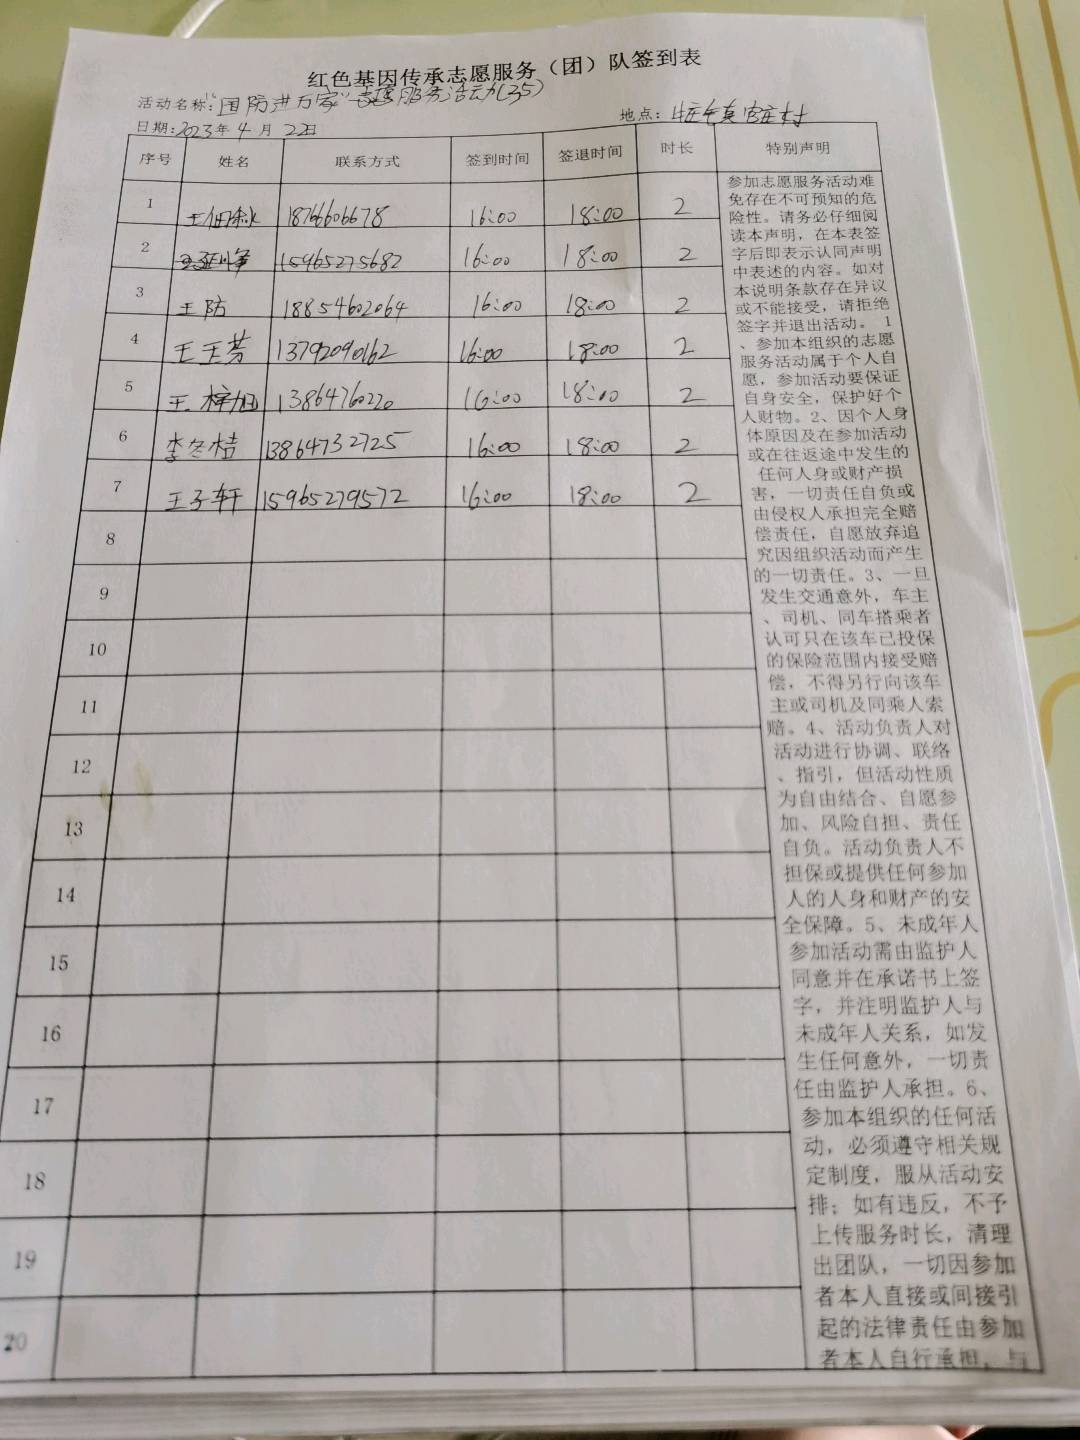 红色基因传承志愿服务（团）队签到表
活动名称:"国防进万家"志愿服务活动(35)
日期:2023年4月22日 地点:
序号 姓名 联系方式 签到时间 签退时间 时长 特别声明
1 18766606678 16:00 18:00 2
2 15965275682 16:00 18:00 2
3 王防 18854602064 16:00 18:00 2
4 王玉芳 13792090162 16:00 18:00 2
5 王梓旭 13864760220 16:00 18:00 2
6 李冬桔 13864732725 16:00 18:00 2
7 王子轩 15965279572 16:00 18:00 2
8
9
10
11
12
13
14
15
16
17
18
19
20
参加志愿服务活动难
免存在不可预知的危
险性。请务必仔细阅
读本声明，在本表签
字后即表示认同声明
中表述的内容。如对
本说明条款存在异议
或不能接受，请拒绝
签字并退出活动。1
、参加本组织的志愿
服务活动属于个人自
愿，参加活动要保证
自身安全，保护好个
人财物。2、因个人身
体原因及在参加活动
或在往返途中发生的
任何人身或财产损
害，一切责任自负或
由侵权人承担完全赔
偿责任，自愿放弃追
究因组织活动而产生
的一切责任。3、一旦
发生交通意外，车主
、司机、同车搭乘者
认可只在该车已投保
的保险范围内接受赔
偿，不得另行向该车
主或司机及同乘人索
赔。4、活动负责人对
活动进行协调、联络
、指引，但活动性质
为自由结合、自愿参
加、风险自担、责任
自负。活动负责人不
担保或提供任何参加
人的人身和财产的安
全保障。5、未成年人
参加活动需由监护人
同意并在承诺书上签
字，并注明监护人与
未成年人关系，如发
生任何意外，一切责
任由监护人承担。6、
参加本组织的任何活
动，必须遵守相关规
定制度，服从活动安
排；如有违反，不予
上传服务时长，清理
出团队，一切因参加
者本人直接或间接引
起的法律责任由参加
者本人自行承担，与